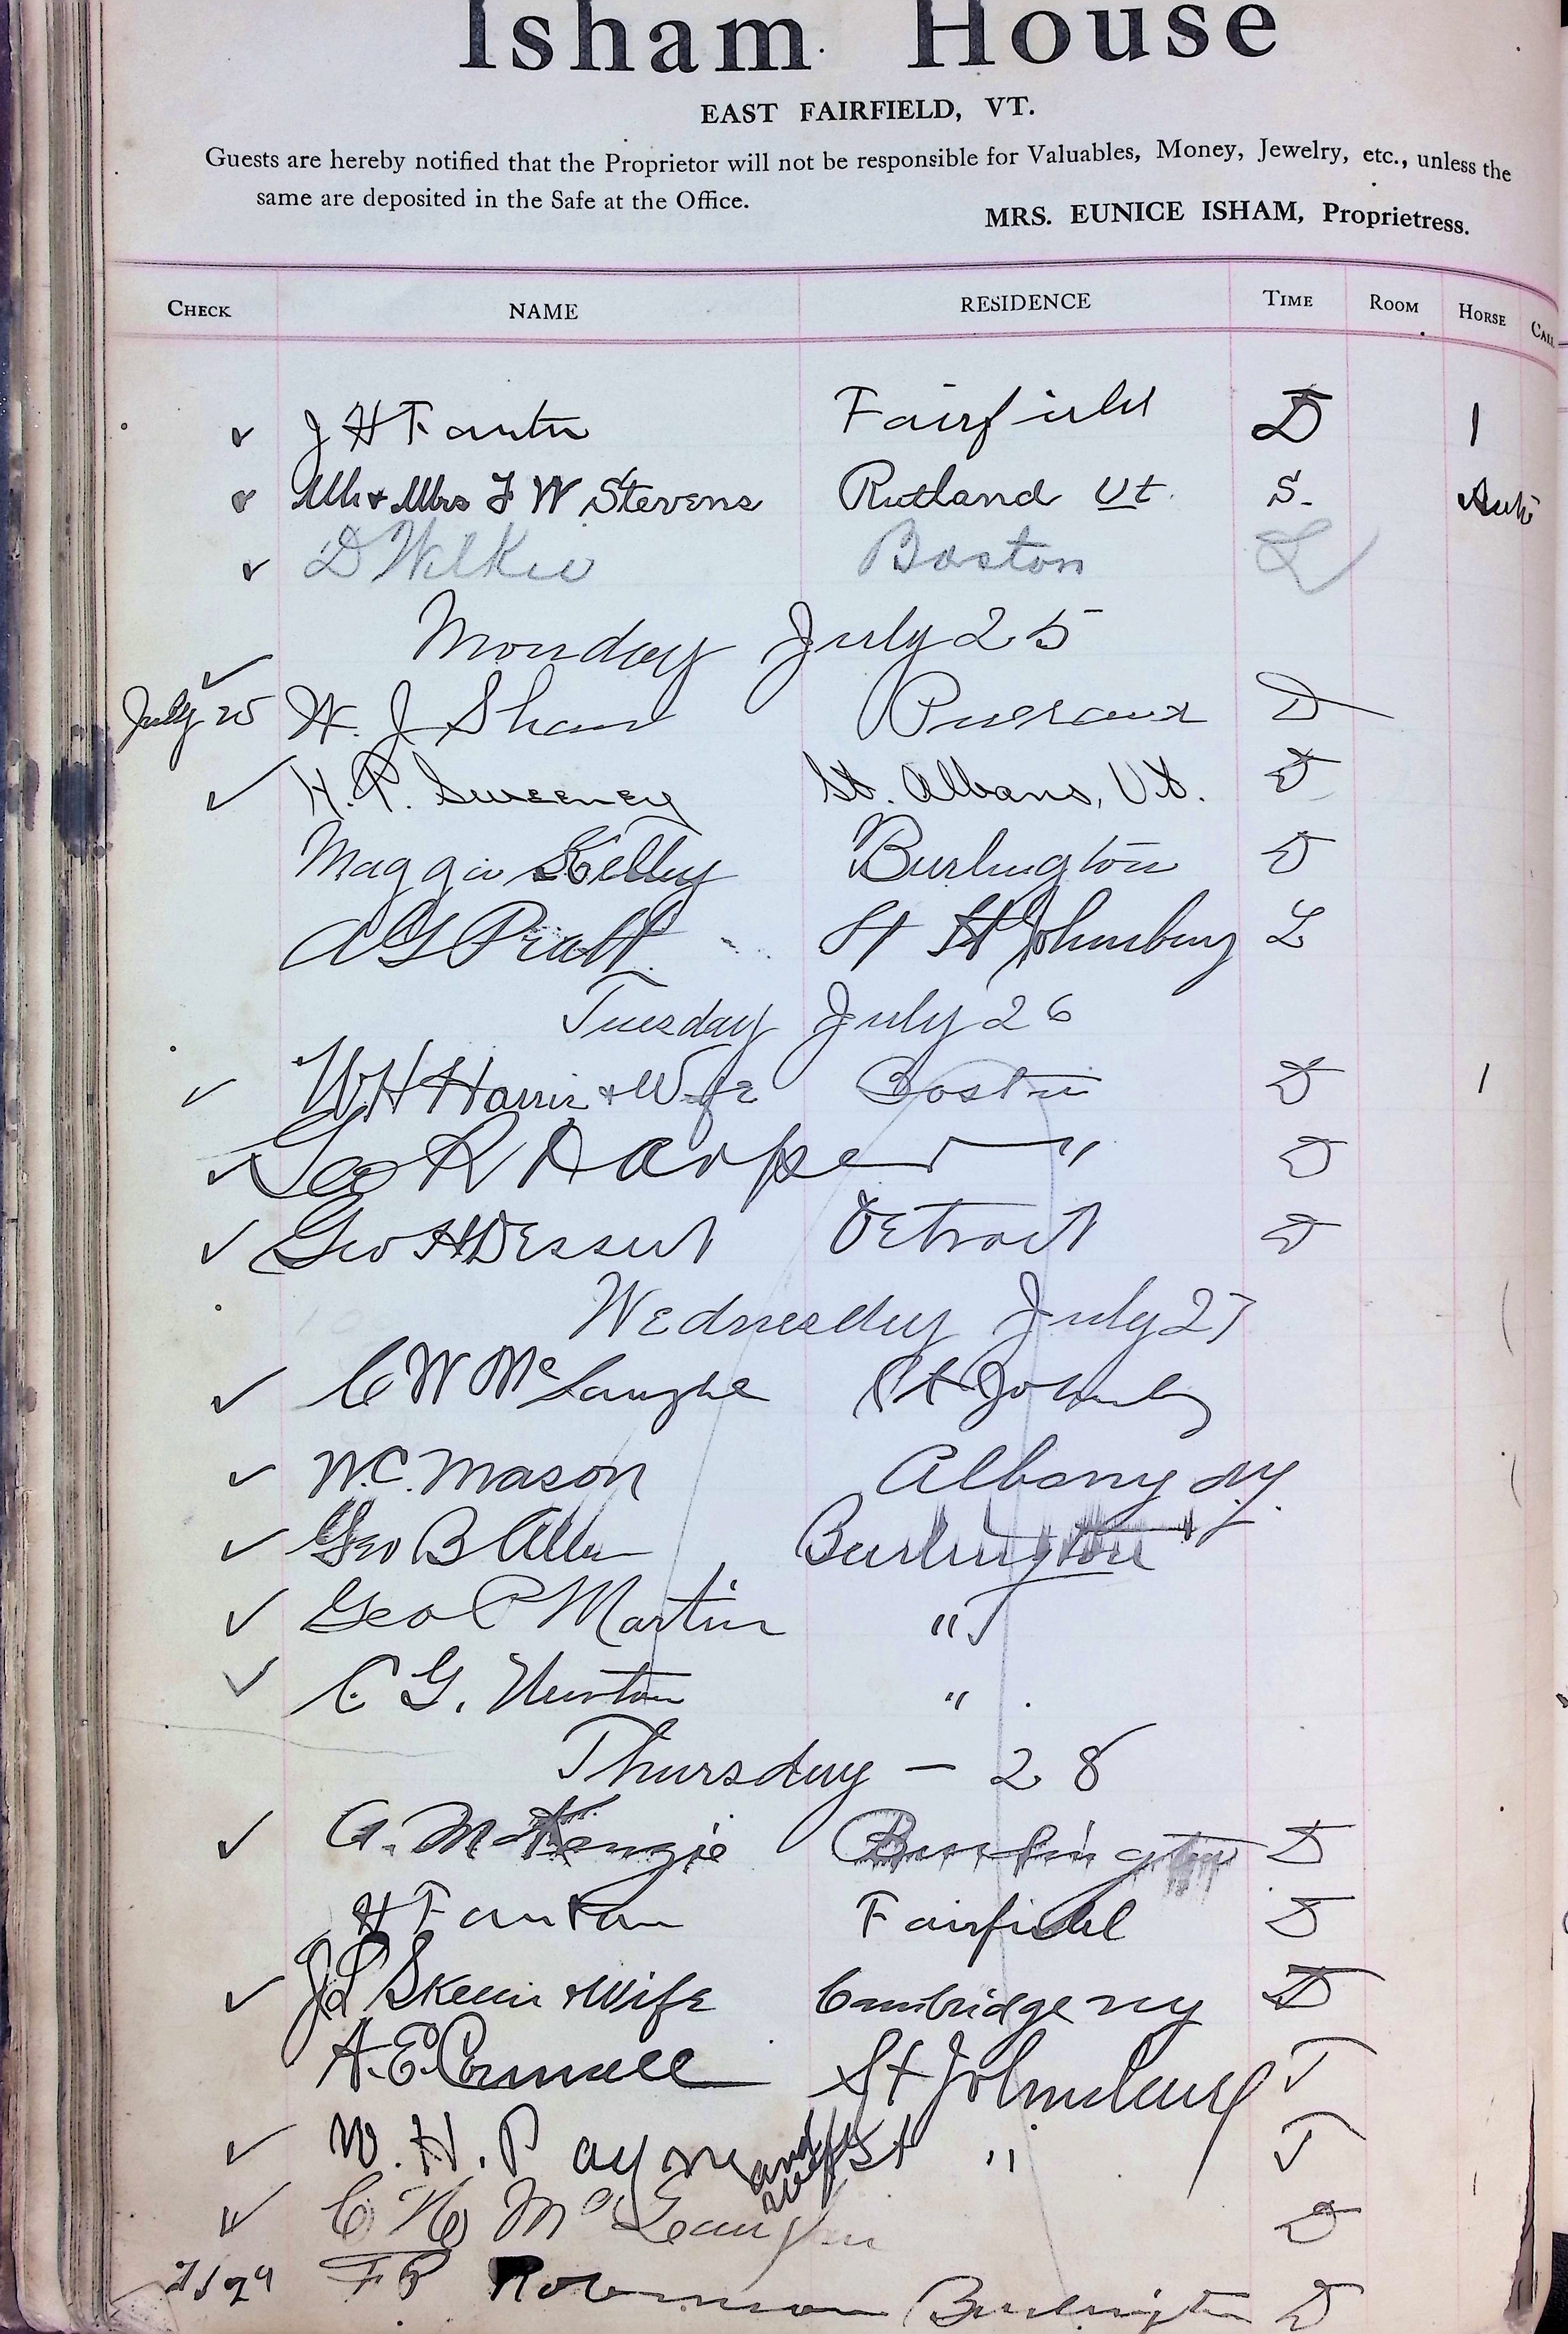 Isham House
EAST FAIRFIELD, VT.
Guests are hereby notified that the Proprietor will not be responsible for Valuables, Money, Jewelry, etc., unless the
same are deposited in the Safe at the Office.
MRS. EUNICE ISHAM, Proprietress.
CHECK NAME RESIDENCE TIME ROOM HORSE CALL
✓ J H Fairfield D 1
✓ Mr & Mrs F W Stevens Rutland Vt. S. Auto
✓ D Wilkie Boston L
Monday July 25
✓ July 25 H. J Shaw D
✓ H. P. Sweeney St. Albans, Vt. D
Maggie Kelley Burlington D
A G Pratt St St Johnsbury L
Tuesday July 26
✓ W H Harris & Wife Boston D 1
✓ Geo R Harper " D
✓ Geo H Dessert Detroit D
Wednesday July 27
✓ C W Mc St Johnsby
✓ W. C. Mason Albany N.Y.
✓ Geo B Allen Burlington
✓ Geo P Martin "
✓ C G. Newton "
Thursday - 28
✓ G. McKenzie Burlington D
H Fairfield S
✓ J L & Wife Cambridge NY D
A. E. St Johnsbury
✓ W. H. Payne and wife St "
✓ C W Mc D
29 F P Robinson Burlington D